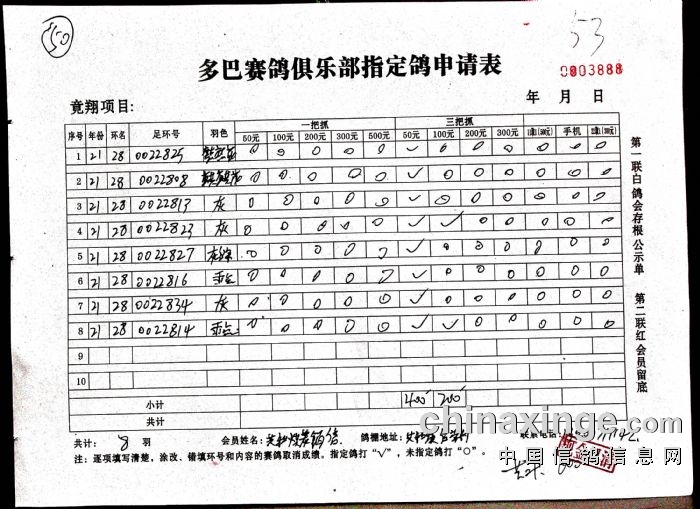 150
53
多巴赛鸽俱乐部指定鸽申请表
0003888
竟翔项目:
年 月 日
序号 年份 环名 足环号 羽色 一把抓 三把抓
50元 100元 200元 300元 500元 50元 100元 200元 300元 手机
1 21 28 0022825 0 0 0 0 0 √ 0 0 0 0 0 0
2 21 28 0022808 0 0 0 0 0 √ 0 0 0 0 0 0
3 21 28 0022813 灰 0 0 0 0 0 √ 0 0 0 0 0 0
4 21 28 0022823 灰 0 0 0 0 0 √ √ 0 0 0 0 0
5 21 28 0022827 0 0 0 0 0 √ 0 0 0 0 0 0
6 21 28 0022816 雨点 0 0 0 0 0 √ 0 0 0 0 0 0
7 21 28 0022834 灰 0 0 0 0 0 √ 0 0 0 0 0 0
8 21 28 0022814 雨点 0 0 0 0 0 √ √ 0 0 0 0 0
9
10
小计 400 200
共计
第一联白鸽会存根公示单 第二联红会员留底
共计: 8 羽 会员姓名: 鸽棚地址: 联系电话
注: 逐项填写清楚，涂改、错填环号和内容的赛鸽取消成绩。指定鸽打“√”，未指定鸽打“○”。
chinaxinge.com
中国信鸽信息网